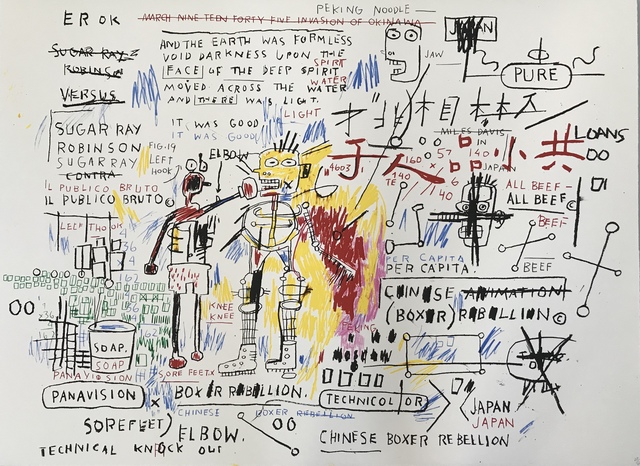 PEKING NOODLE—
EROK
MARCH NINE TEEN FORTY FIVE INVASION OF OKINAWA
JAPAN
AND THE EARTH WAS FORMLESS
VOID DARKNESS UPON THE
FACE OF THE DEEP SPIRIT
SPIRIT
WATER
MOVED ACROSS THE WATER
AND THERE WAS LIGHT.
LIGHT
IT WAS GOOD
IT WAS GOOD
SUGAR RAY
ROBINSON
VERSUS
JAW
PURE
SUGAR RAY
ROBINSON
SUGAR RAY
CONTRA
FIG.19
LEFT
HOOK
ELBOW
IL PUBLICO BRUTO
IL PUBLICO BRUTO©
MILES DAVIS
IN
JAPAN
LOANS
人 品 小 共
4603
160
57
140
140
TE
6
40
ALL BEEF—
ALL BEEF
BEEF
BEEF
PER CAPITA
PER CAPITA.
LEFT HOOK
CHINESE ANIMATION
(BOXER) REBELLION©
KNEE
KNEE
PEKING
SOAP.
SOAP
PANAVISION
SORE FEET.X
PANAVISION
X
BOXER REBELLION.
TECHNICOLOR
CHINESE BOXER REBELLION
JAPAN
JAPAN
SOREFEET)
ELBOW.
TECHNICAL KNOCK OUT
CHINESE BOXER REBELLION